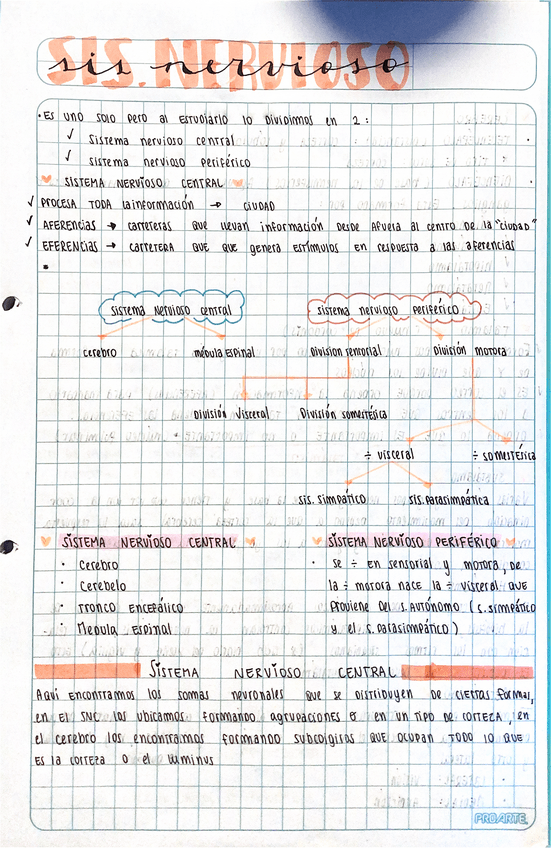 SIS. NERVIOSO
sis nervioso
• Es uno solo pero al estudiarlo lo dividimos en 2:
✓ Sistema nervioso central
✓ sistema nervioso periférico
SISTEMA NERVIOSO CENTRAL
✓ Procesa toda la información → ciudad
✓ Aferencias → carreteras que llevan información desde afuera al centro de la "ciudad"
✓ Eferencias → carretera que que genera estímulos en respuesta a las aferencias
sistema nervioso central   sistema nervioso periférico
cerebro   médula espinal   División sensorial   División motora
División visceral   División somestésica
÷ visceral   ÷ somestésica
sis. simpático   sis. parasimpática
SISTEMA NERVIOSO CENTRAL   SISTEMA NERVIOSO PERIFÉRICO
• Cerebro   • se ÷ en sensorial y motora, de
• Cerebelo   la ÷ motora nace la ÷ visceral que
• Tronco encefálico   proviene del s. autónomo (s. simpático
• Medula espinal   y el s. parasimpático)
SISTEMA NERVIOSO CENTRAL
Aquí encontramos los somas neuronales que se distribuyen de ciertas formas,
en el SNC los ubicamos formando agrupaciones o en un tipo de corteza, en
el cerebro los encontramos formando que ocupan todo lo que
es la corteza o el
PROARTE